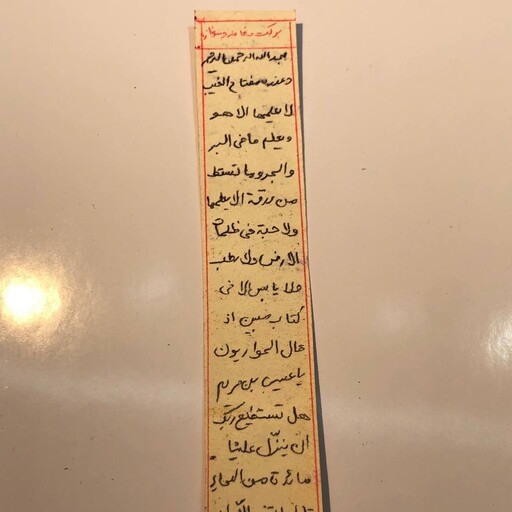 برکت
بسم الله الرحمن الرحیم
وعنده مفتاح الغیب
لا یعلمها الا هو
ویعلم ما فی البر
والبحر وما تسقط
من ورقة الا یعلمها
ولا حبة فی ظلمات
الارض ولا رطب
ولا یابس الا فی
کتاب مبین اذ
قال الحواریون
یا عیسی بن مریم
هل تستطیع ربک
ان ینزّل علینا
مائدة من السماء